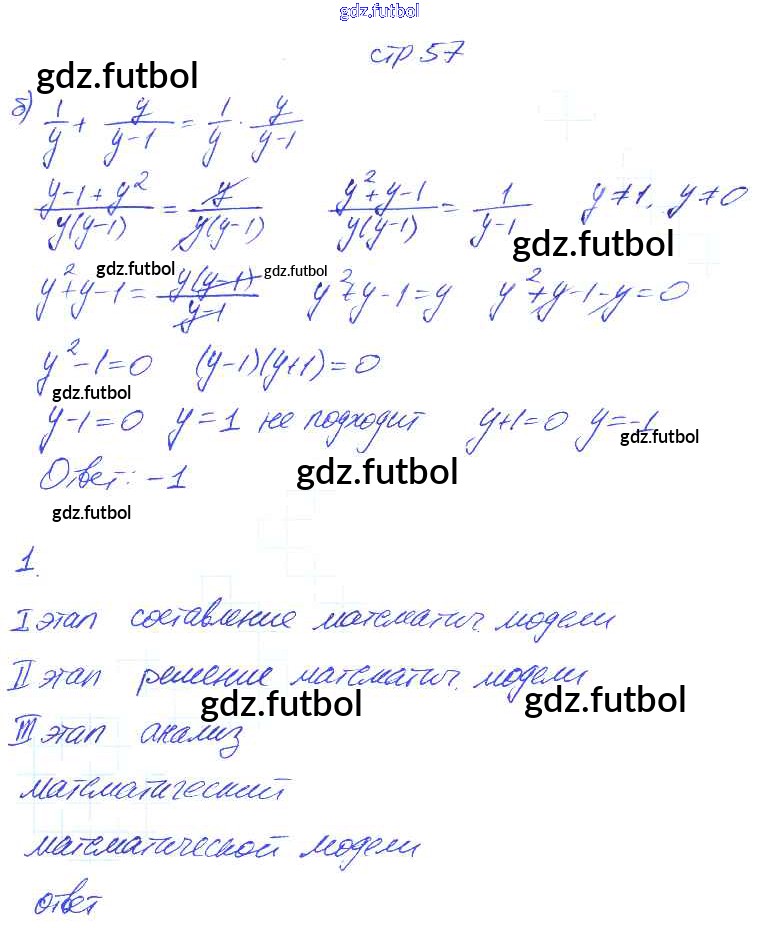 gdz.futbol
стр 57
gdz.futbol
б) 1/y + y/(y-1) = 1/y · y/(y-1)
(y-1+y²)/(y(y-1)) = y/(y(y-1)) (y²+y-1)/(y(y-1)) = 1/(y-1) y≠1, y≠0
gdz.futbol
gdz.futbol gdz.futbol
y²+y-1 = y(y-1)/(y-1) y²+y-1=y y²+y-1-y=0
y²-1=0 (y-1)(y+1)=0
gdz.futbol
y-1=0 y=1 не подходит y+1=0 y=-1
gdz.futbol
Ответ: -1
gdz.futbol
gdz.futbol
1.
I этап составление математич. модели
II этап решение математич. модели
gdz.futbol gdz.futbol
III этап анализ
математический
математической модели
ответ